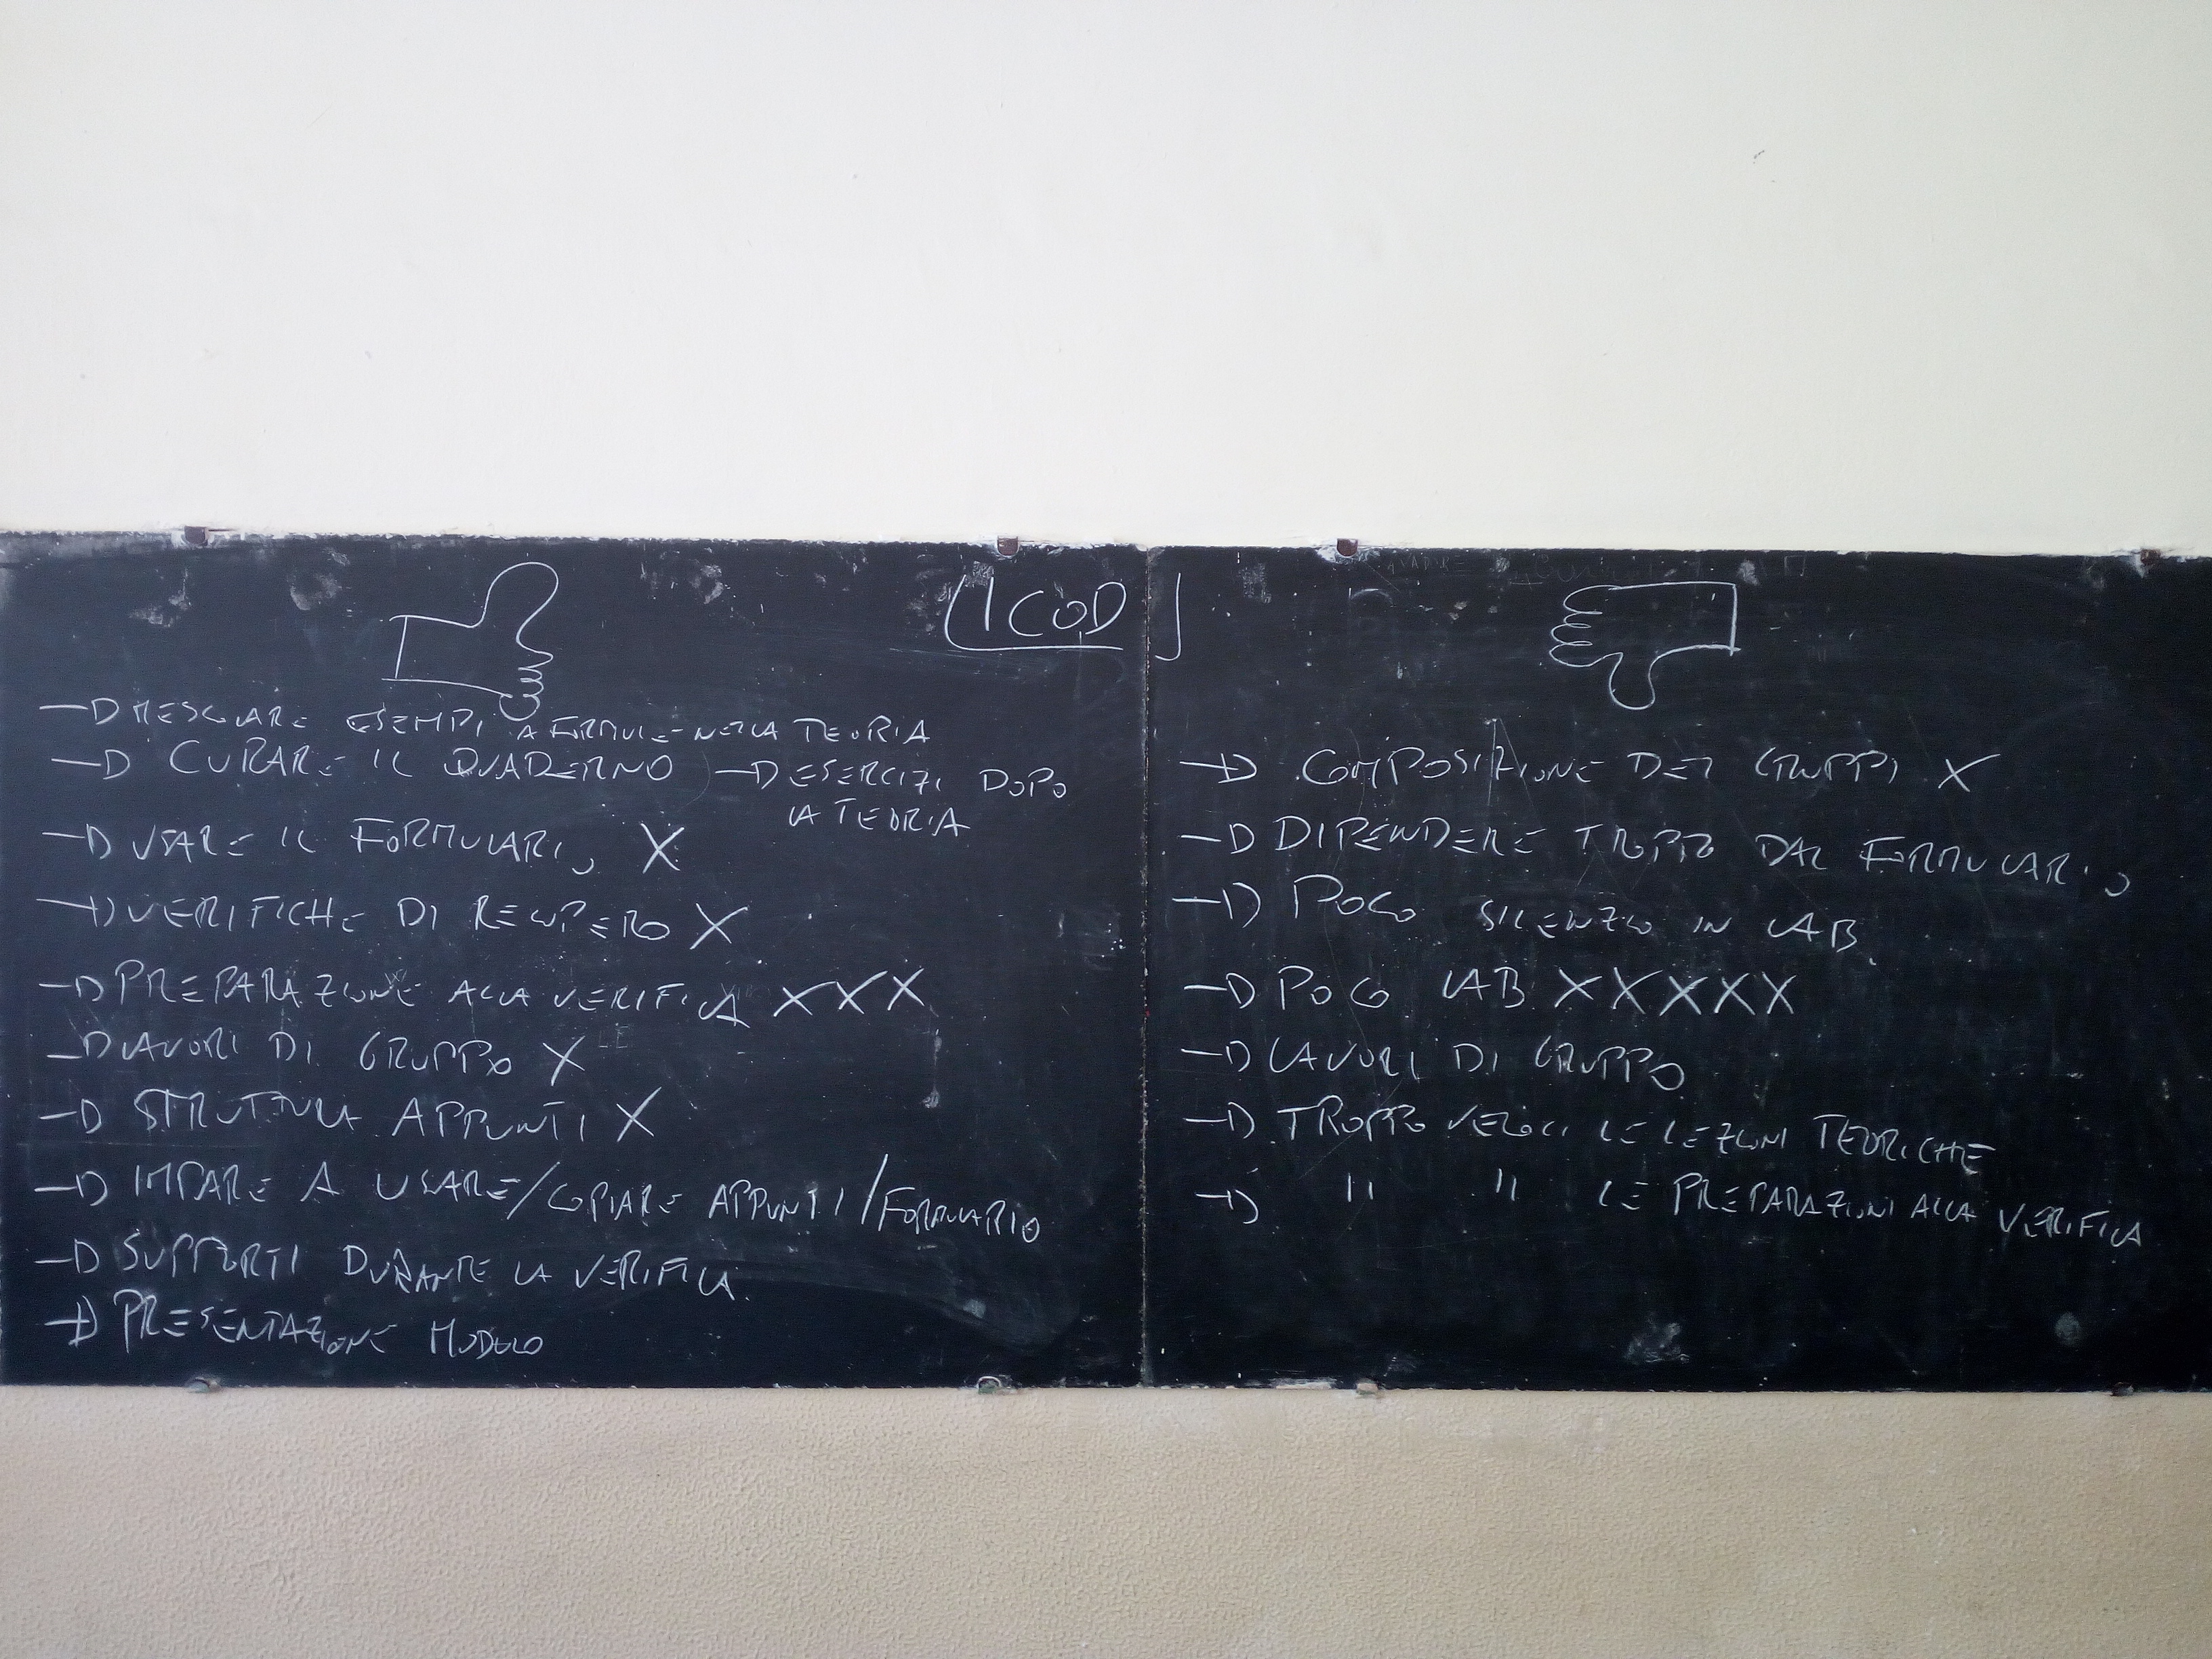 1COD
→ MESCOLARE ESEMPI A FORMULE NELLA TEORIA
→ CURARE IL QUADERNO → ESERCIZI DOPO
LA TEORIA
→ USARE IL FORMULARIO X
→ VERIFICHE DI RECUPERO X
→ PREPARAZIONE ALLA VERIFICA XXX
→ LAVORI DI GRUPPO X
→ STRUTTURA APPUNTI X
→ IMPARARE A USARE/COPIARE APPUNTI/FORMULARIO
→ SUPPORTI DURANTE LA VERIFICA
→ PRESENTAZIONE MODULO
→ COMPOSIZIONE DEI GRUPPI X
→ DIPENDERE TROPPO DAL FORMULARIO
→ POCO SILENZIO IN LAB.
→ POCO LAB XXXXX
→ LAVORI DI GRUPPO
→ TROPPO VELOCI LE LEZIONI TEORICHE
→ " " LE PREPARAZIONI ALLA VERIFICA